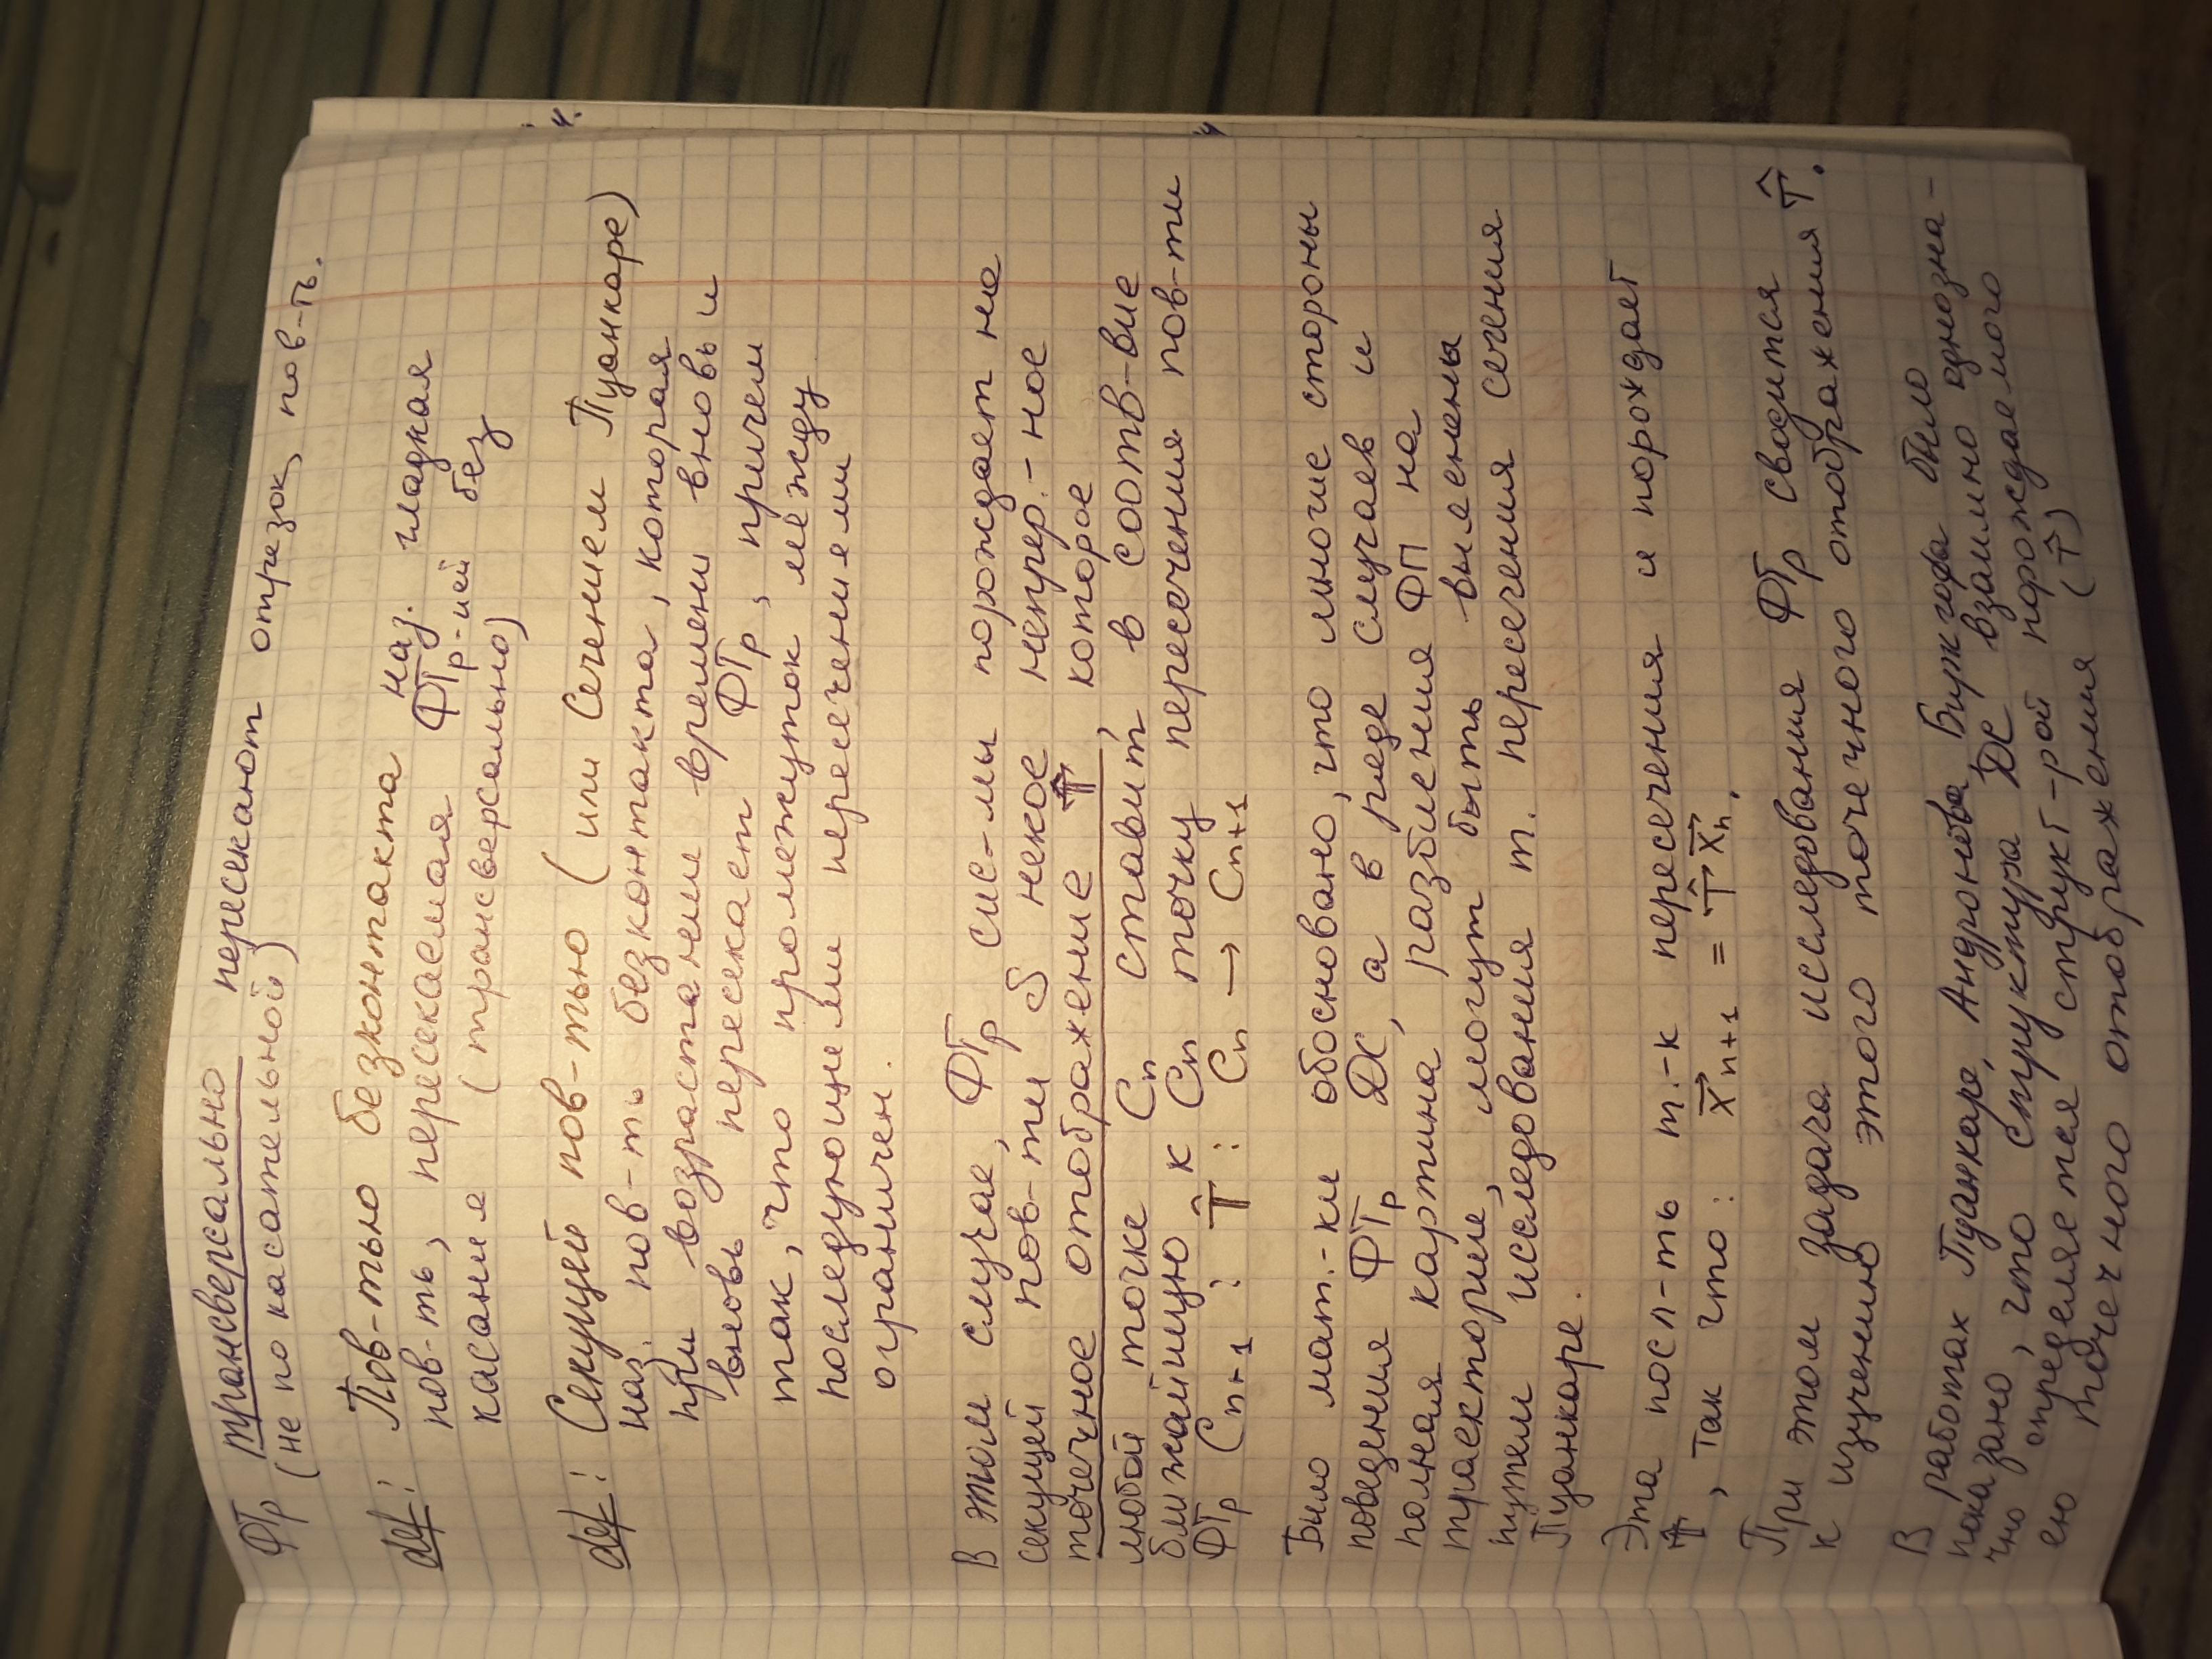 ФТр трансверсально пересекают отрезок, пов-ть.
(не по касательной)
def: Пов-тью безконтакта наз. гладкая
пов-ть, пересекаемая ФТр-ией без
касания (трансверсально)
def: Секущей пов-тью (или Сечением Пуанкаре)
наз. пов-ть безконтакта, которая
при возрастании времени вновь и
вновь пересекает ФТр, причем
так, что промежуток между
последующими пересечениями
ограничен.
В этом случае, ФТр сис-мы порождает на
секущей пов-ти S некое непрер.-ное
точечное отображение T̂, которое
любой точке Cn ставит в соотв-вие
ближайшую к Cn точку пересечения пов-ти
ФТр Cn+1 : T̂ : Cn → Cn+1
Было мат.-ки обосновано, что многие стороны
поведения ФТр ДС, а в ряде случаев и
полная картина разбиения ФП на
траектории, могут быть выяснены
путем исследования т. пересечения сечения
Пуанкаре.
Эта посл-ть т.-к пересечения и порождает
T̂, так что: x⃗n+1 = T̂x⃗n.
При этом задача исследования ФТр сводится
к изучению этого точечного отображения T̂.
В работах Пуанкаре, Андронова, Биркгофа было
показано, что структура ДС взаимно однозна-
чно определяется структ-рой порождаемого
ею точечного отображения (T̂)